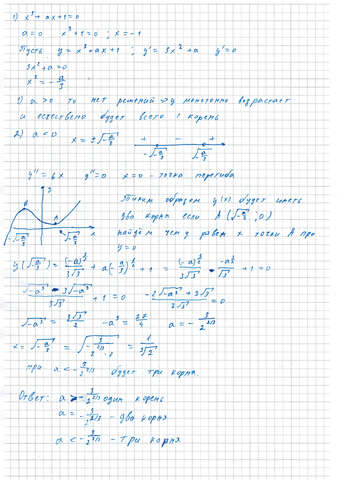 1) x³ + ax + 1 = 0
a = 0 x³ + 1 = 0 ; x = -1
Пусть y = x³ + ax + 1 ; y' = 3x² + a y' = 0
3x² + a = 0
x² = -a/3
1) a > 0 то нет решений ⇒ y монотонно возрастает
и естествено будет всего 1 корень
2) a < 0 x = ±√(-a/3)
+ - +
-√(-a/3) √(-a/3)
y'' = 6x y'' = 0 x = 0 - точка перегиба
Таким образом y(x) будет иметь
два корня если A (√(-a/3) ; 0)
найдём чему равен x точки A при
y = 0
-√(-a/3) √(-a/3) x
+ 1 = 0
√(-a³) = 3√3/2 -a³ = 27/4 a = -3/2^(2/3)
при a < -3/2^(2/3) будет три корня.
Ответ: a > -3/2^(2/3) один корень
a = -3/2^(2/3) - два корня
a < -3/2^(2/3) - три корня